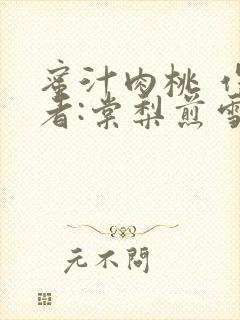 蜜汁肉桃 作
者:棠梨煎雪
元不問